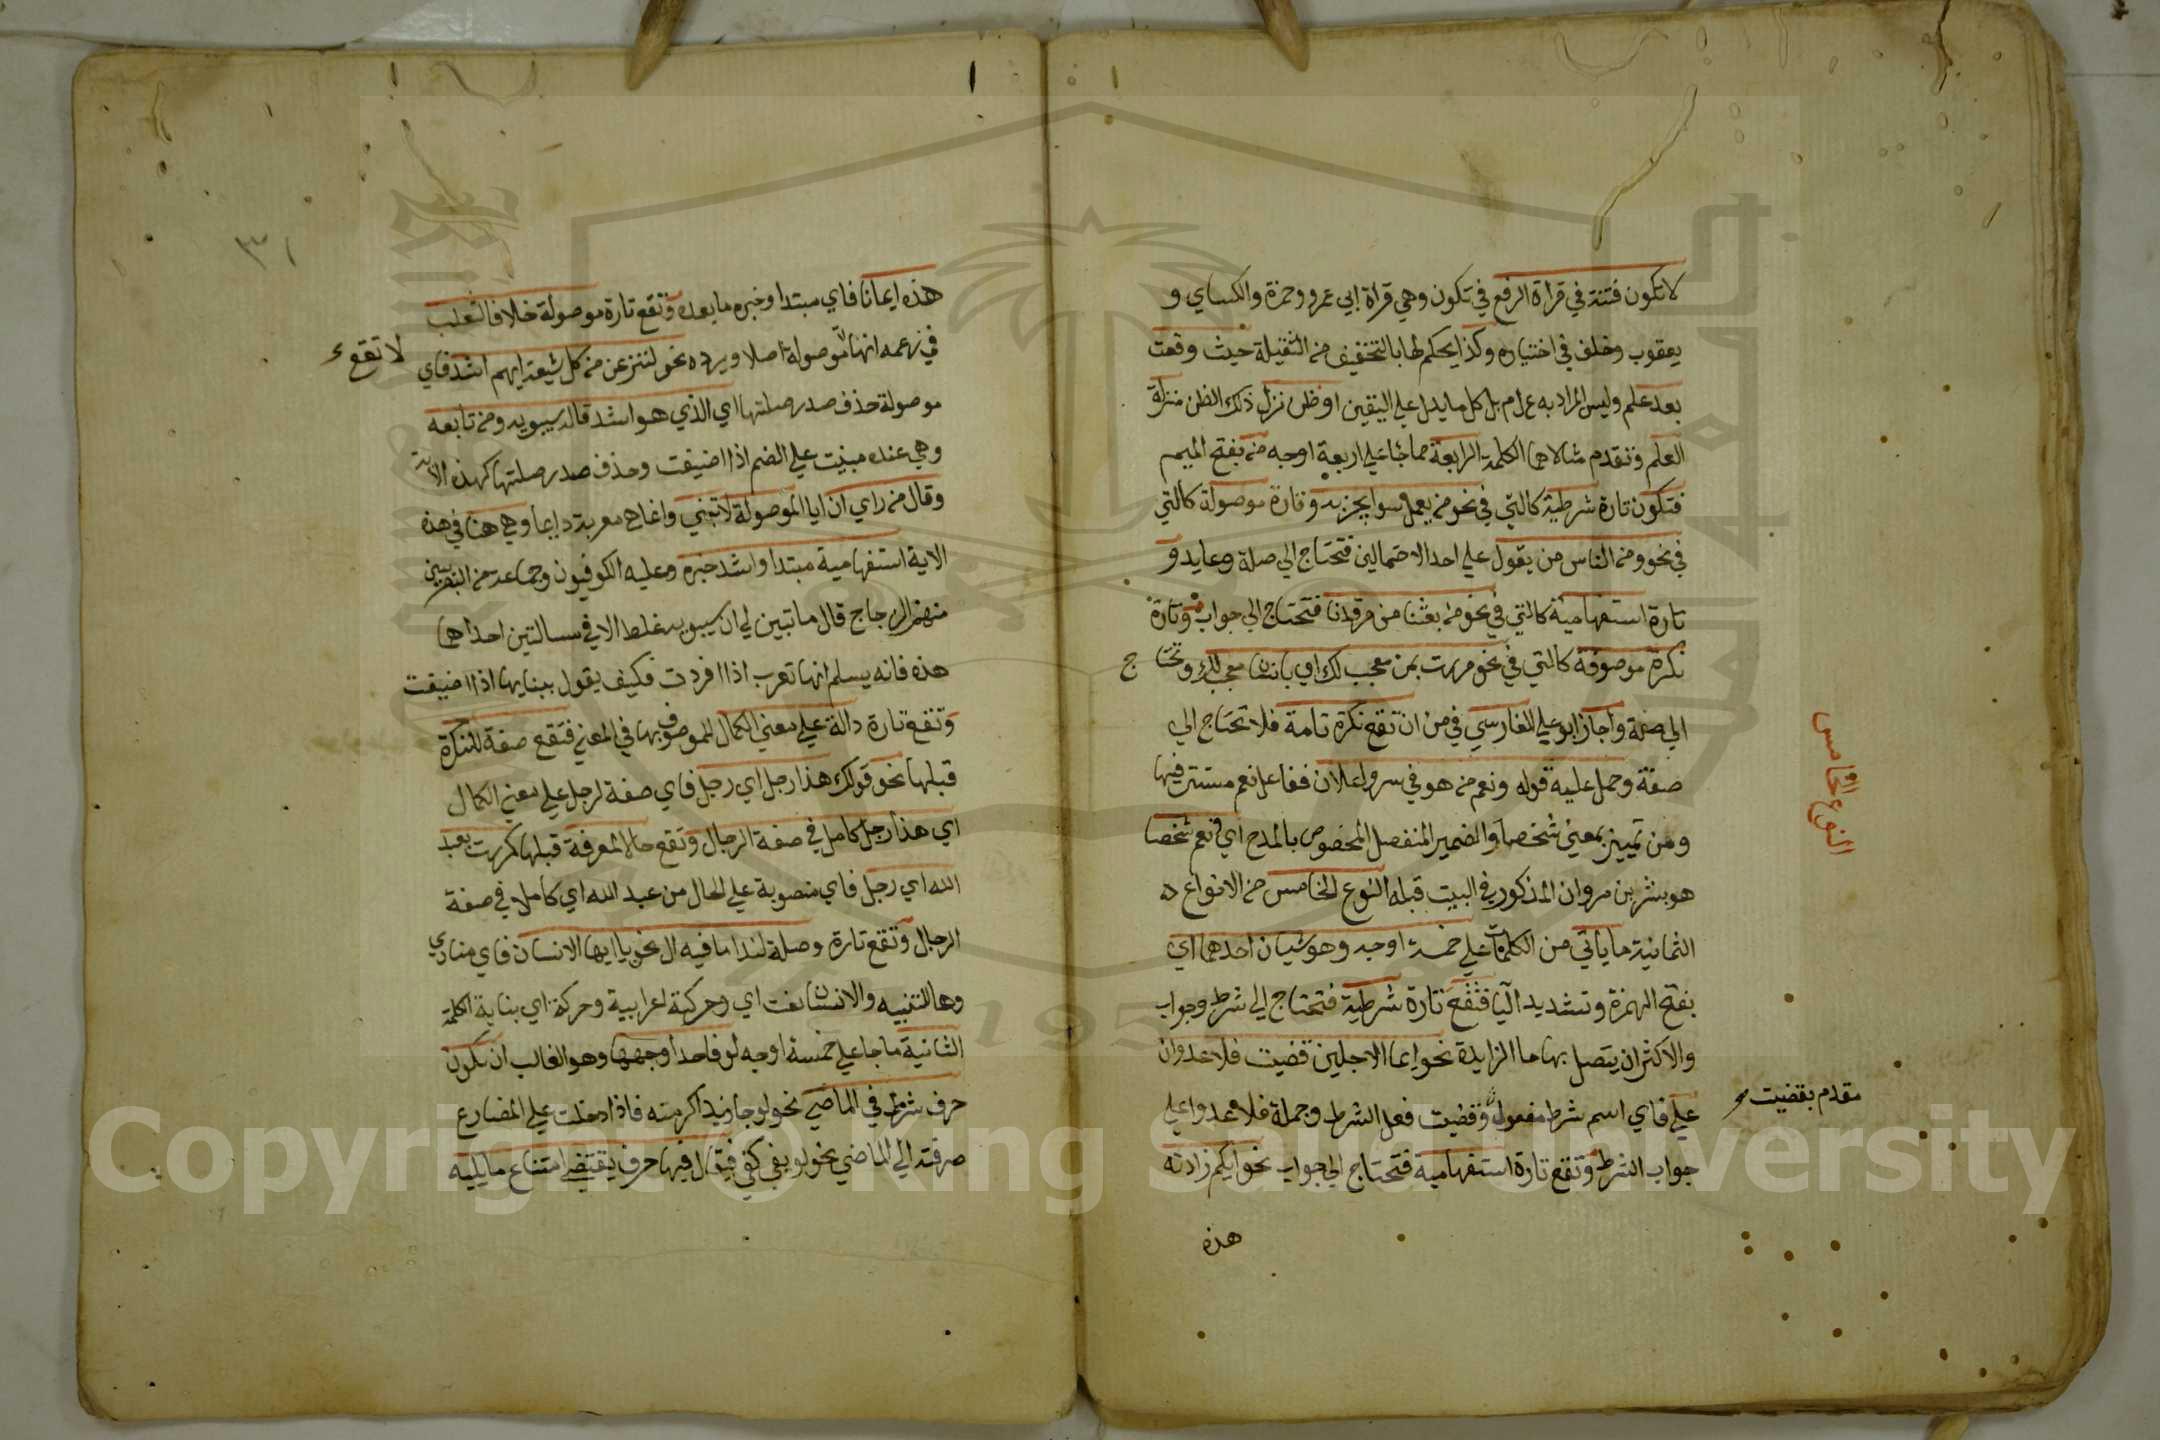 لا تكون فتنة في قراة الرفع في تكون وهي قراة ابي عمرو وحمزة والكساي و
يعقوب وخلف في اختياره وكذا يحكم لها بالتخفيف من الثقيلة حيث وقعت
بعد علم وليس المراد به ع ل م بل كل ما يدل علي اليقين او ظن نزل ذلك الظن منزلة
العلم وتقدم مثالاهما الكلمة الرابعة مما جا علي اربعة اوجه من بفتح الميم
فتكون تارة شرطية كالتي في نحو من يعمل سوا يجز به وتارة موصولة كالتي
في نحو ومن الناس من يقول علي احد الاحتمالين فتحتاج الي صلة وعايد و
تارة استفهامية كالتي في نحو من بعثنا من مرقدنا فتحتاج الي جواب وتارة
نكرة موصوفة كالتي في نحو مررت بمن معجب لك اي بانسان معجب لك وتحتاج
الي صفة واجاز ابو علي الفارسي في من ان تقع نكرة تامة فلا تحتاج الي
صفة وحمل عليه قوله ونعم من هو في سر واعلان ففاعل نعم مستتر فيها
ومن تمييز بمعني شخصا والضمير المنفصل المخصوص بالمدح اي نعم شخصا
هو بشر بن مروان المذكور في البيت قبله النوع الخامس من الانواع
الثمانية ما ياتي من الكلمات علي خمسة اوجه وهو شيان احدهما اي
بفتح الهمزة وتشديد اليا فتقع تارة شرطية فتحتاج الي شرط وجواب
والاكثر ان يتصل بها ما الزايدة نحو ايما الاجلين قضيت فلا عدوان
علي فاي اسم شرط مفعول وقضيت فعل الشرط وجملة فلا عدوان علي
جواب الشرط وتقع تارة استفهامية فتحتاج الي جواب نحو ايكم زادته
هذه
النوع الخامس
مقدم بقضيت
هذه ايمانا فاي مبتدا وخبره ما بعده وتقع تارة موصولة خلافا لثعلب
في زعمه انها موصولة اصلا ويرده نحو لننزعن من كل شيعة ايهم اشد فاي
موصولة حذف صدر صلتها اي الذي هو اشد قاله سيبويه ومن تابعه
وهي عنده مبنية علي الضم اذا اضيفت وحذف صدر صلتها كهذه الاية
وقال من راي ان ايا الموصولة لا تبني وانما هي معربة دايما وهي هنا في هذه
الاية استفهامية مبتدا واشد خبره وعليه الكوفيون وجماعة من البصريين
منهم الزجاج قال ما تبين لي ان سيبويه غلط الا في مسالتين احداهما
هذه فانه يسلم انها تعرب اذا افردت فكيف يقول ببنايها اذا اضيفت
وتقع تارة دالة علي معني الكمال للموصوف بها في المعني فتقع صفة للنكرة
قبلها نحو قولك هذا رجل اي رجل فاي صفة لرجل علي معني الكمال
اي هذا رجل كامل في صفة الرجال وتقع حالا لمعرفة قبلها كمررت بعبد
الله اي رجل فاي منصوبة علي الحال من عبد الله اي كاملا في صفة
الرجال وتقع تارة وصلة لندا ما فيه ال نحو يا ايها الانسان فاي منادي
وها للتنبيه والانسان نعت اي وحركته اعرابية وحركة اي بناية الكلمة
الثانية ما جا علي خمسة اوجه لو فاحد اوجهها وهو الغالب ان تكون
حرف شرط في الماضي نحو لو جا زيد اكرمته فاذا دخلت علي المضارع
صرفته الي الماضي نحو لو يفي كفي فيقال فيها حرف يقتضي امتناع ما يليه
لا تقع
٣١
Copyright © King Saud University